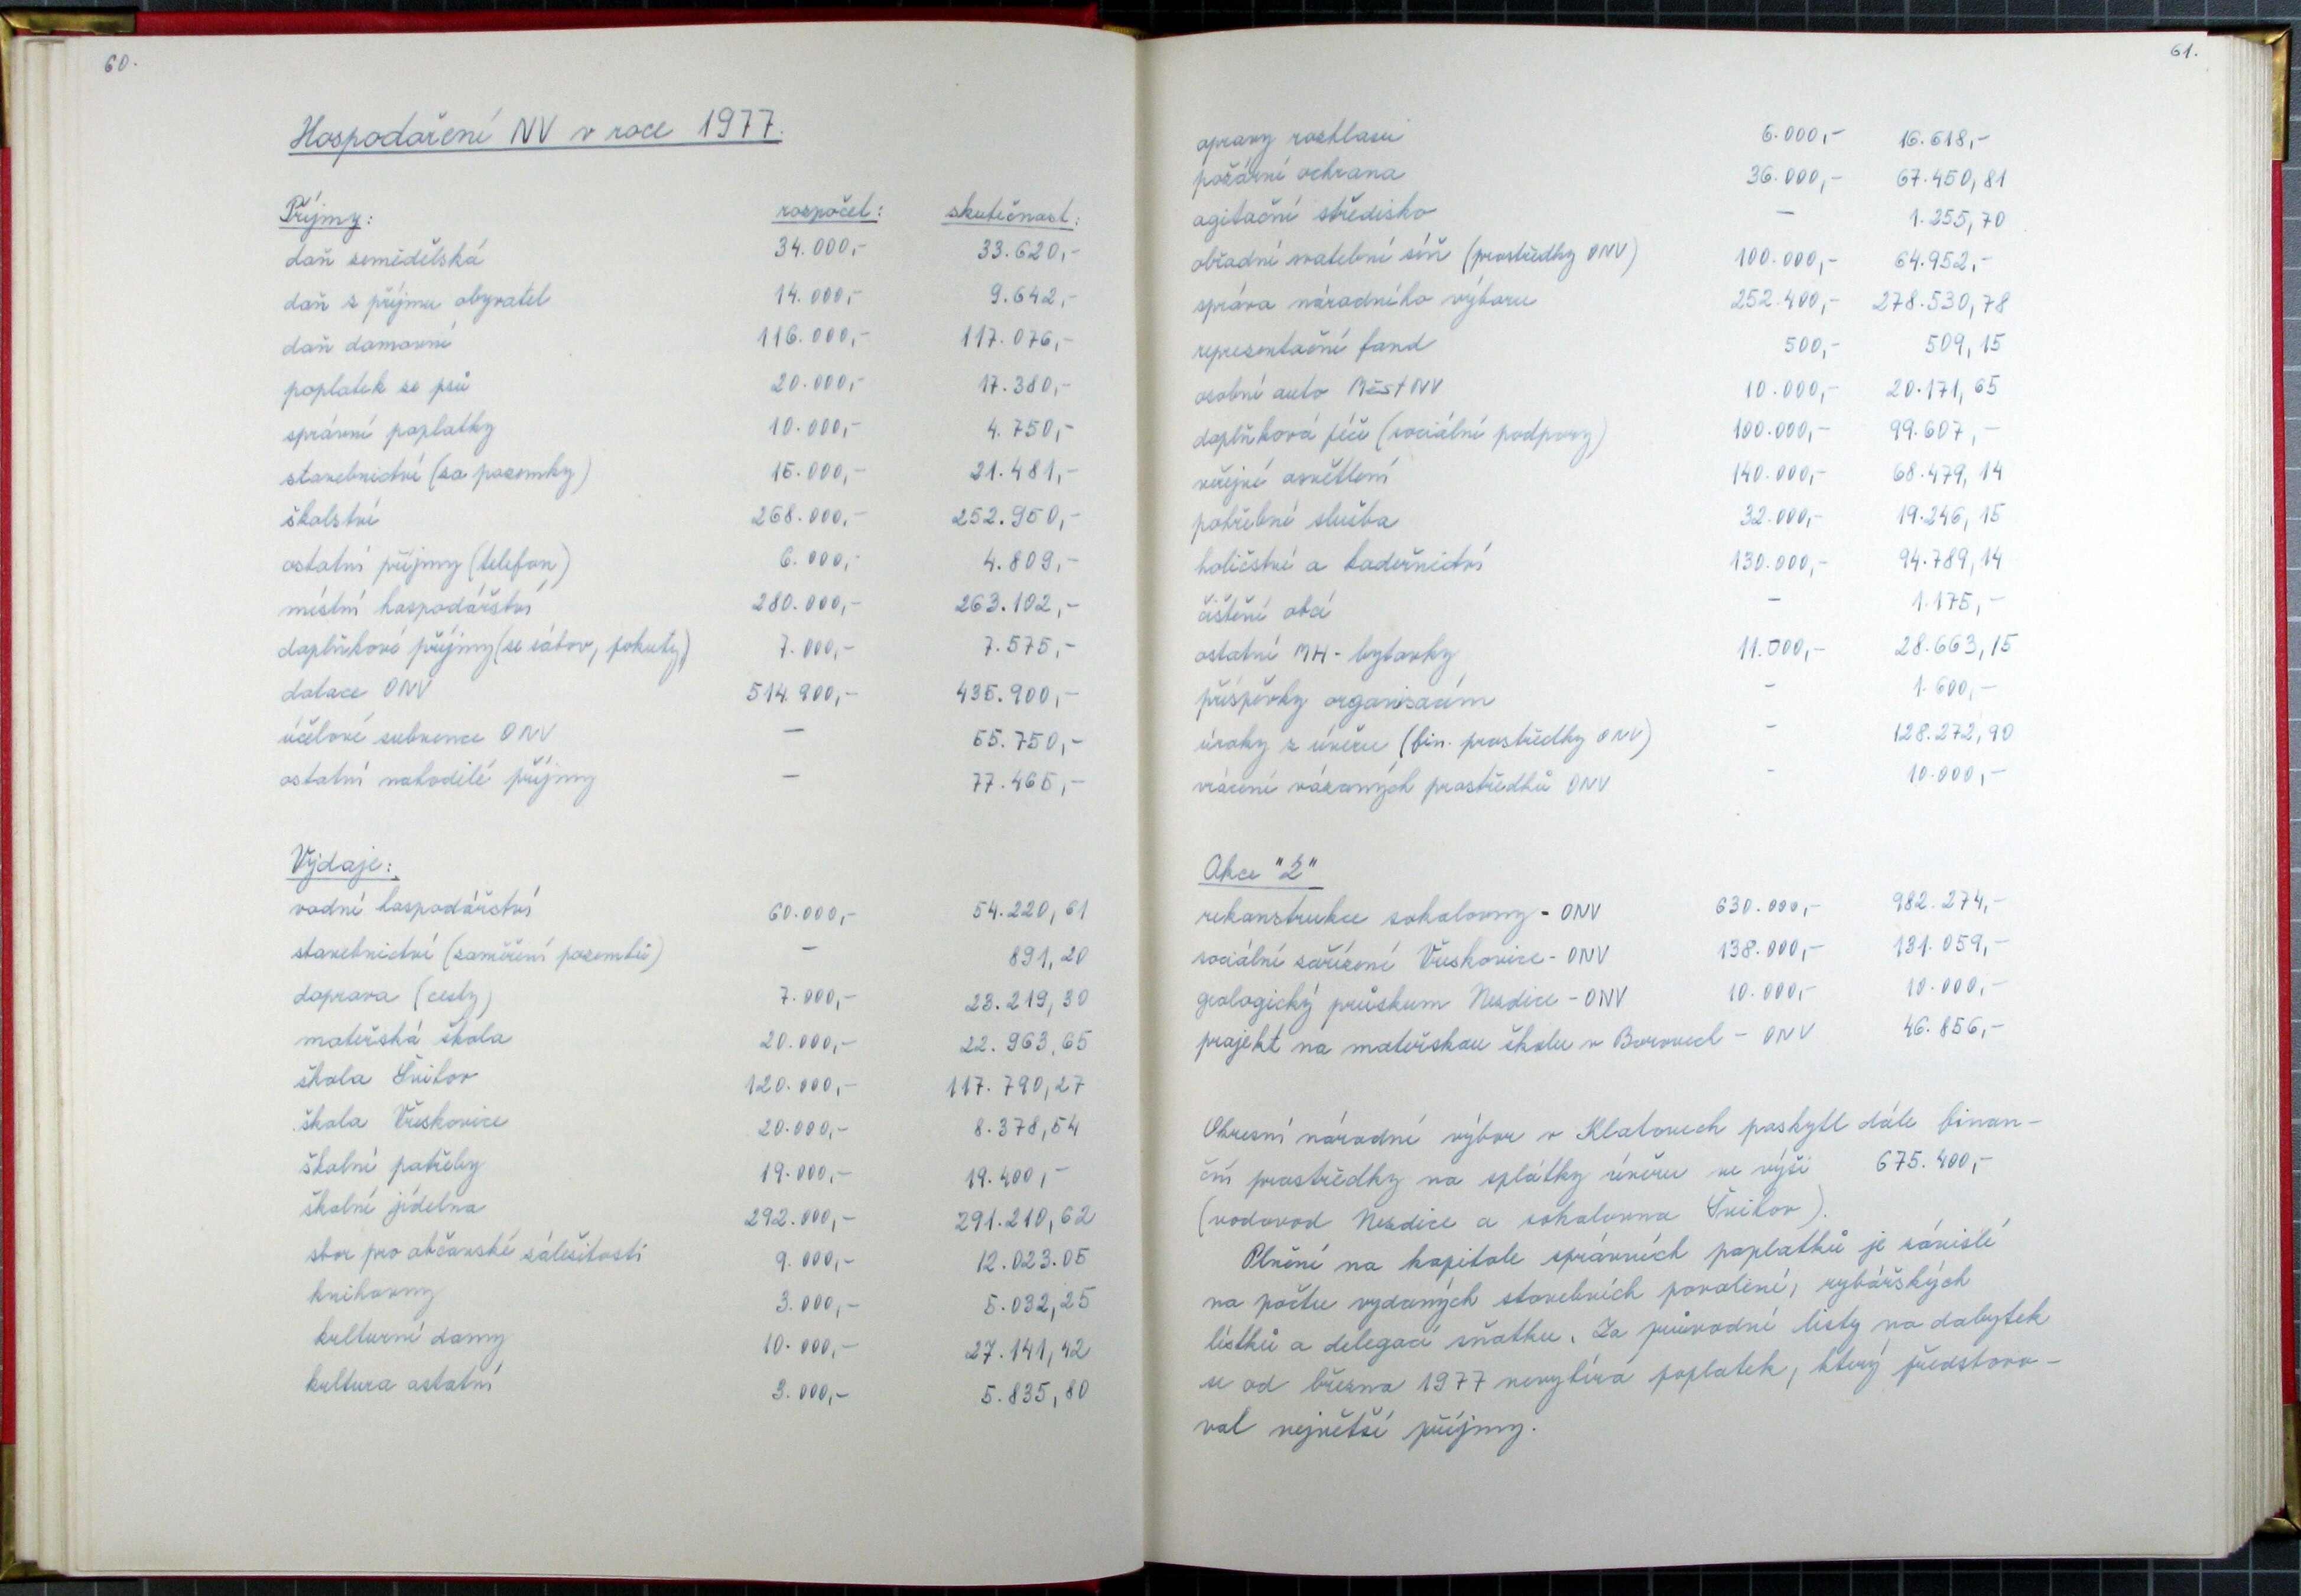 60.
Hospodaření NV v roce 1977.
Příjmy: rozpočet: skutečnost:
daň zemědělská 34.000,- 33.620,-
daň z příjmu obyvatel 14.000,- 9.642,-
daň domovní 116.000,- 117.076,-
poplatek ze psů 20.000,- 17.380,-
správní poplatky 10.000,- 4.750,-
stavebnictví (za pozemky) 15.000,- 21.481,-
školství 268.000,- 252.950,-
ostatní příjmy (telefon) 6.000,- 4.809,-
místní hospodářství 280.000,- 263.102,-
doplňkové příjmy (ze sázov, pokuty) 7.000,- 7.575,-
dotace ONV 514.900,- 435.900,-
účelové subvence ONV — 55.750,-
ostatní nahodilé příjmy — 77.465,-
Výdaje:
vodní hospodářství 60.000,- 54.220,61
stavebnictví (zaměření pozemků) — 891,20
doprava (cesty) 7.000,- 23.219,30
mateřská škola 20.000,- 22.963,65
škola Švihov 120.000,- 117.790,27
škola Vřeskovice 20.000,- 8.378,54
školní potřeby 19.000,- 19.400,-
školní jídelna 292.000,- 291.210,62
sbor pro občanské záležitosti 9.000,- 12.023.05
knihovny 3.000,- 5.032,25
kulturní domy 10.000,- 27.141,42
kultura ostatní 3.000,- 5.835,80
61.
opravy rozhlasu 6.000,- 16.618,-
požární ochrana 36.000,- 67.450,81
agitační středisko — 1.255,70
obřadní svatební síň (prostředky ONV) 100.000,- 64.952,-
správa národního výboru 252.400,- 278.530,78
representační fond 500,- 509,15
osobní auto MěstNV 10.000,- 20.171,65
doplňková péče (sociální podpory) 100.000,- 99.607,-
veřejné osvětlení 140.000,- 68.479,14
pohřební služba 32.000,- 19.246,15
holičství a kadeřnictví 130.000,- 94.789,14
čištění obcí - 1.175,-
ostatní MH - bytovky 11.000,- 28.663,15
příspěvky organisacím - 1.600,-
úroky z úvěru (fin. prostředky ONV) - 128.272,90
vrácení vázaných prostředků ONV - 10.000,-
Akce "Z"
rekonstrukce sokolovny - ONV 630.000,- 982.274,-
sociální zařízení Vřeskovice - ONV 138.000,- 131.059,-
geologický průzkum Nezdice - ONV 10.000,- 10.000,-
projekt na mateřskou školu v Borovech - ONV 46.856,-
Okresní národní výbor v Klatovech poskytl dále finan-
ční prostředky na splátky úvěru ve výši 675.400,-
(vodovod Nezdice a sokolovna Švihov).
Plnění na kapitole správních poplatků je závislé
na počtu vydaných stavebních povolení, rybářských
lístků a delegací sňatku. Za průvodní listy na dobytek
se od března 1977 nevybírá poplatek, který představo-
val největší příjmy.